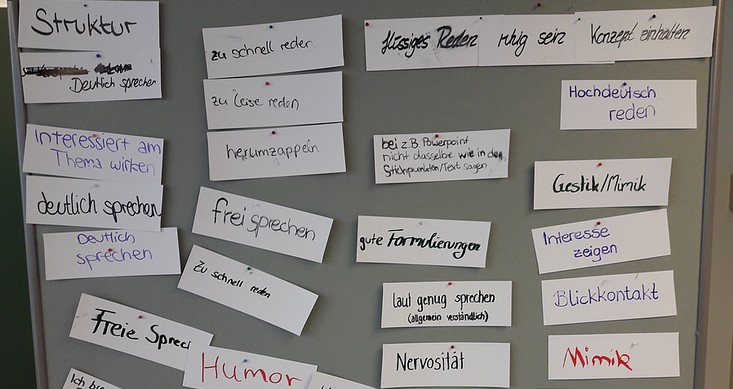 Struktur
Deutlich sprechen
Interessiert am
Thema wirken
deutlich sprechen
Deutlich
sprechen
Freie Sprec
Ich br
zu schnell reden
zu leise reden
herumzappeln
frei sprechen
Zu schnell reden
Humor
flüssiges Reden
ruhig sein
Konzept einhalten
bei z.B. Powerpoint
nicht dasselbe wie in den
Stichpunkten/Text sagen
gute Formulierungen
laut genug sprechen
(allgemein verständlich)
Nervosität
Hochdeutsch
reden
Gestik/Mimik
Interesse
zeigen
Blickkontakt
Mimik